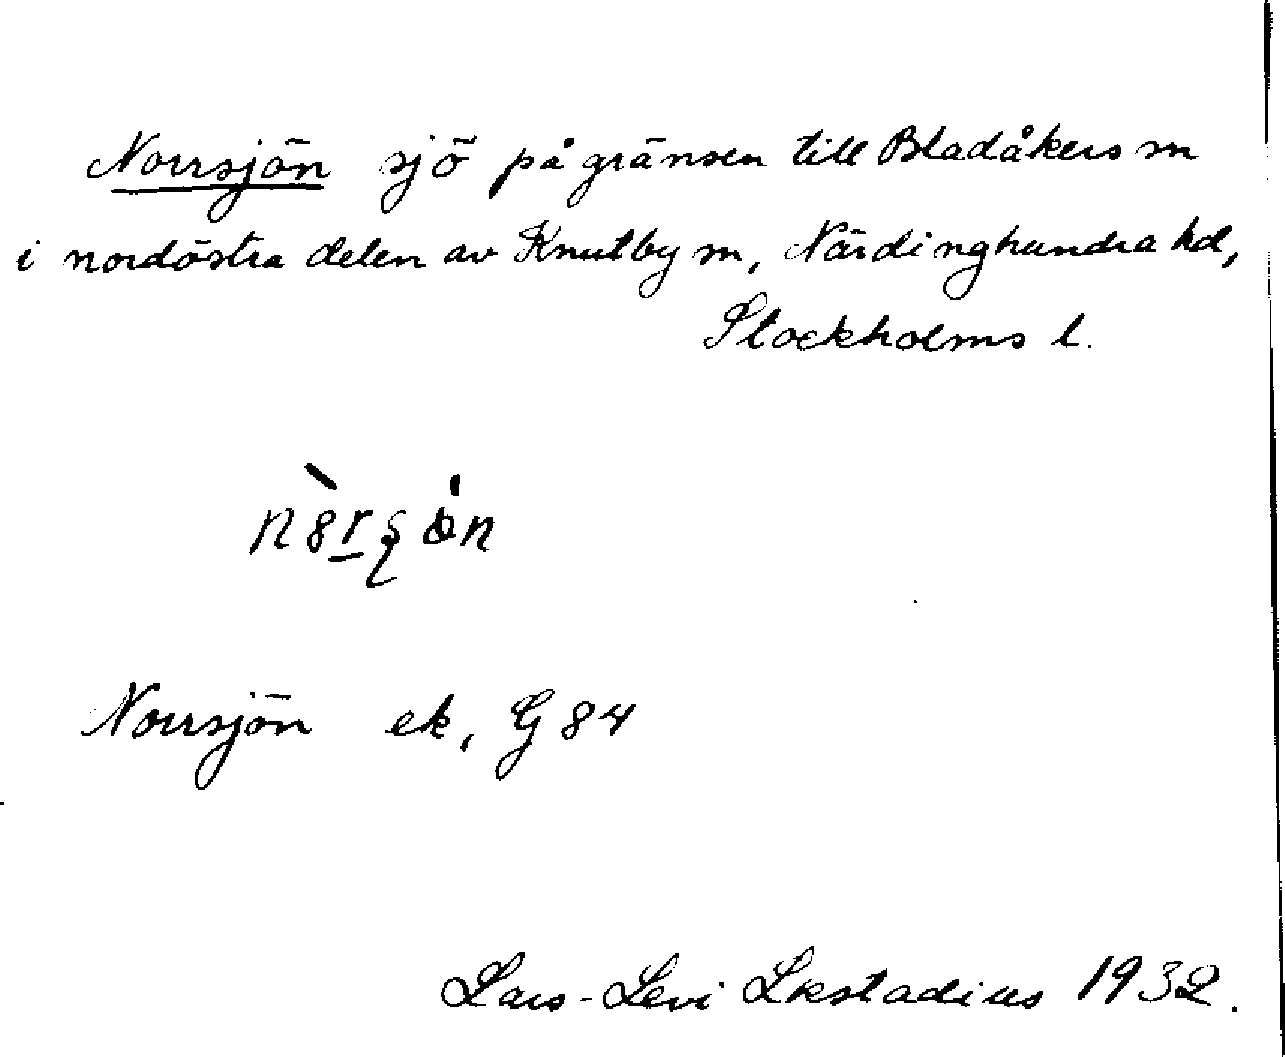 Norrsjön sjö på gränsen till Bladåkers sn
i nordöstra delen av Knutby sn, Närdinghundra hd,
Stockholms l.
Norrsjön ek, G 84
Lars-Levi Læstadius 1932.